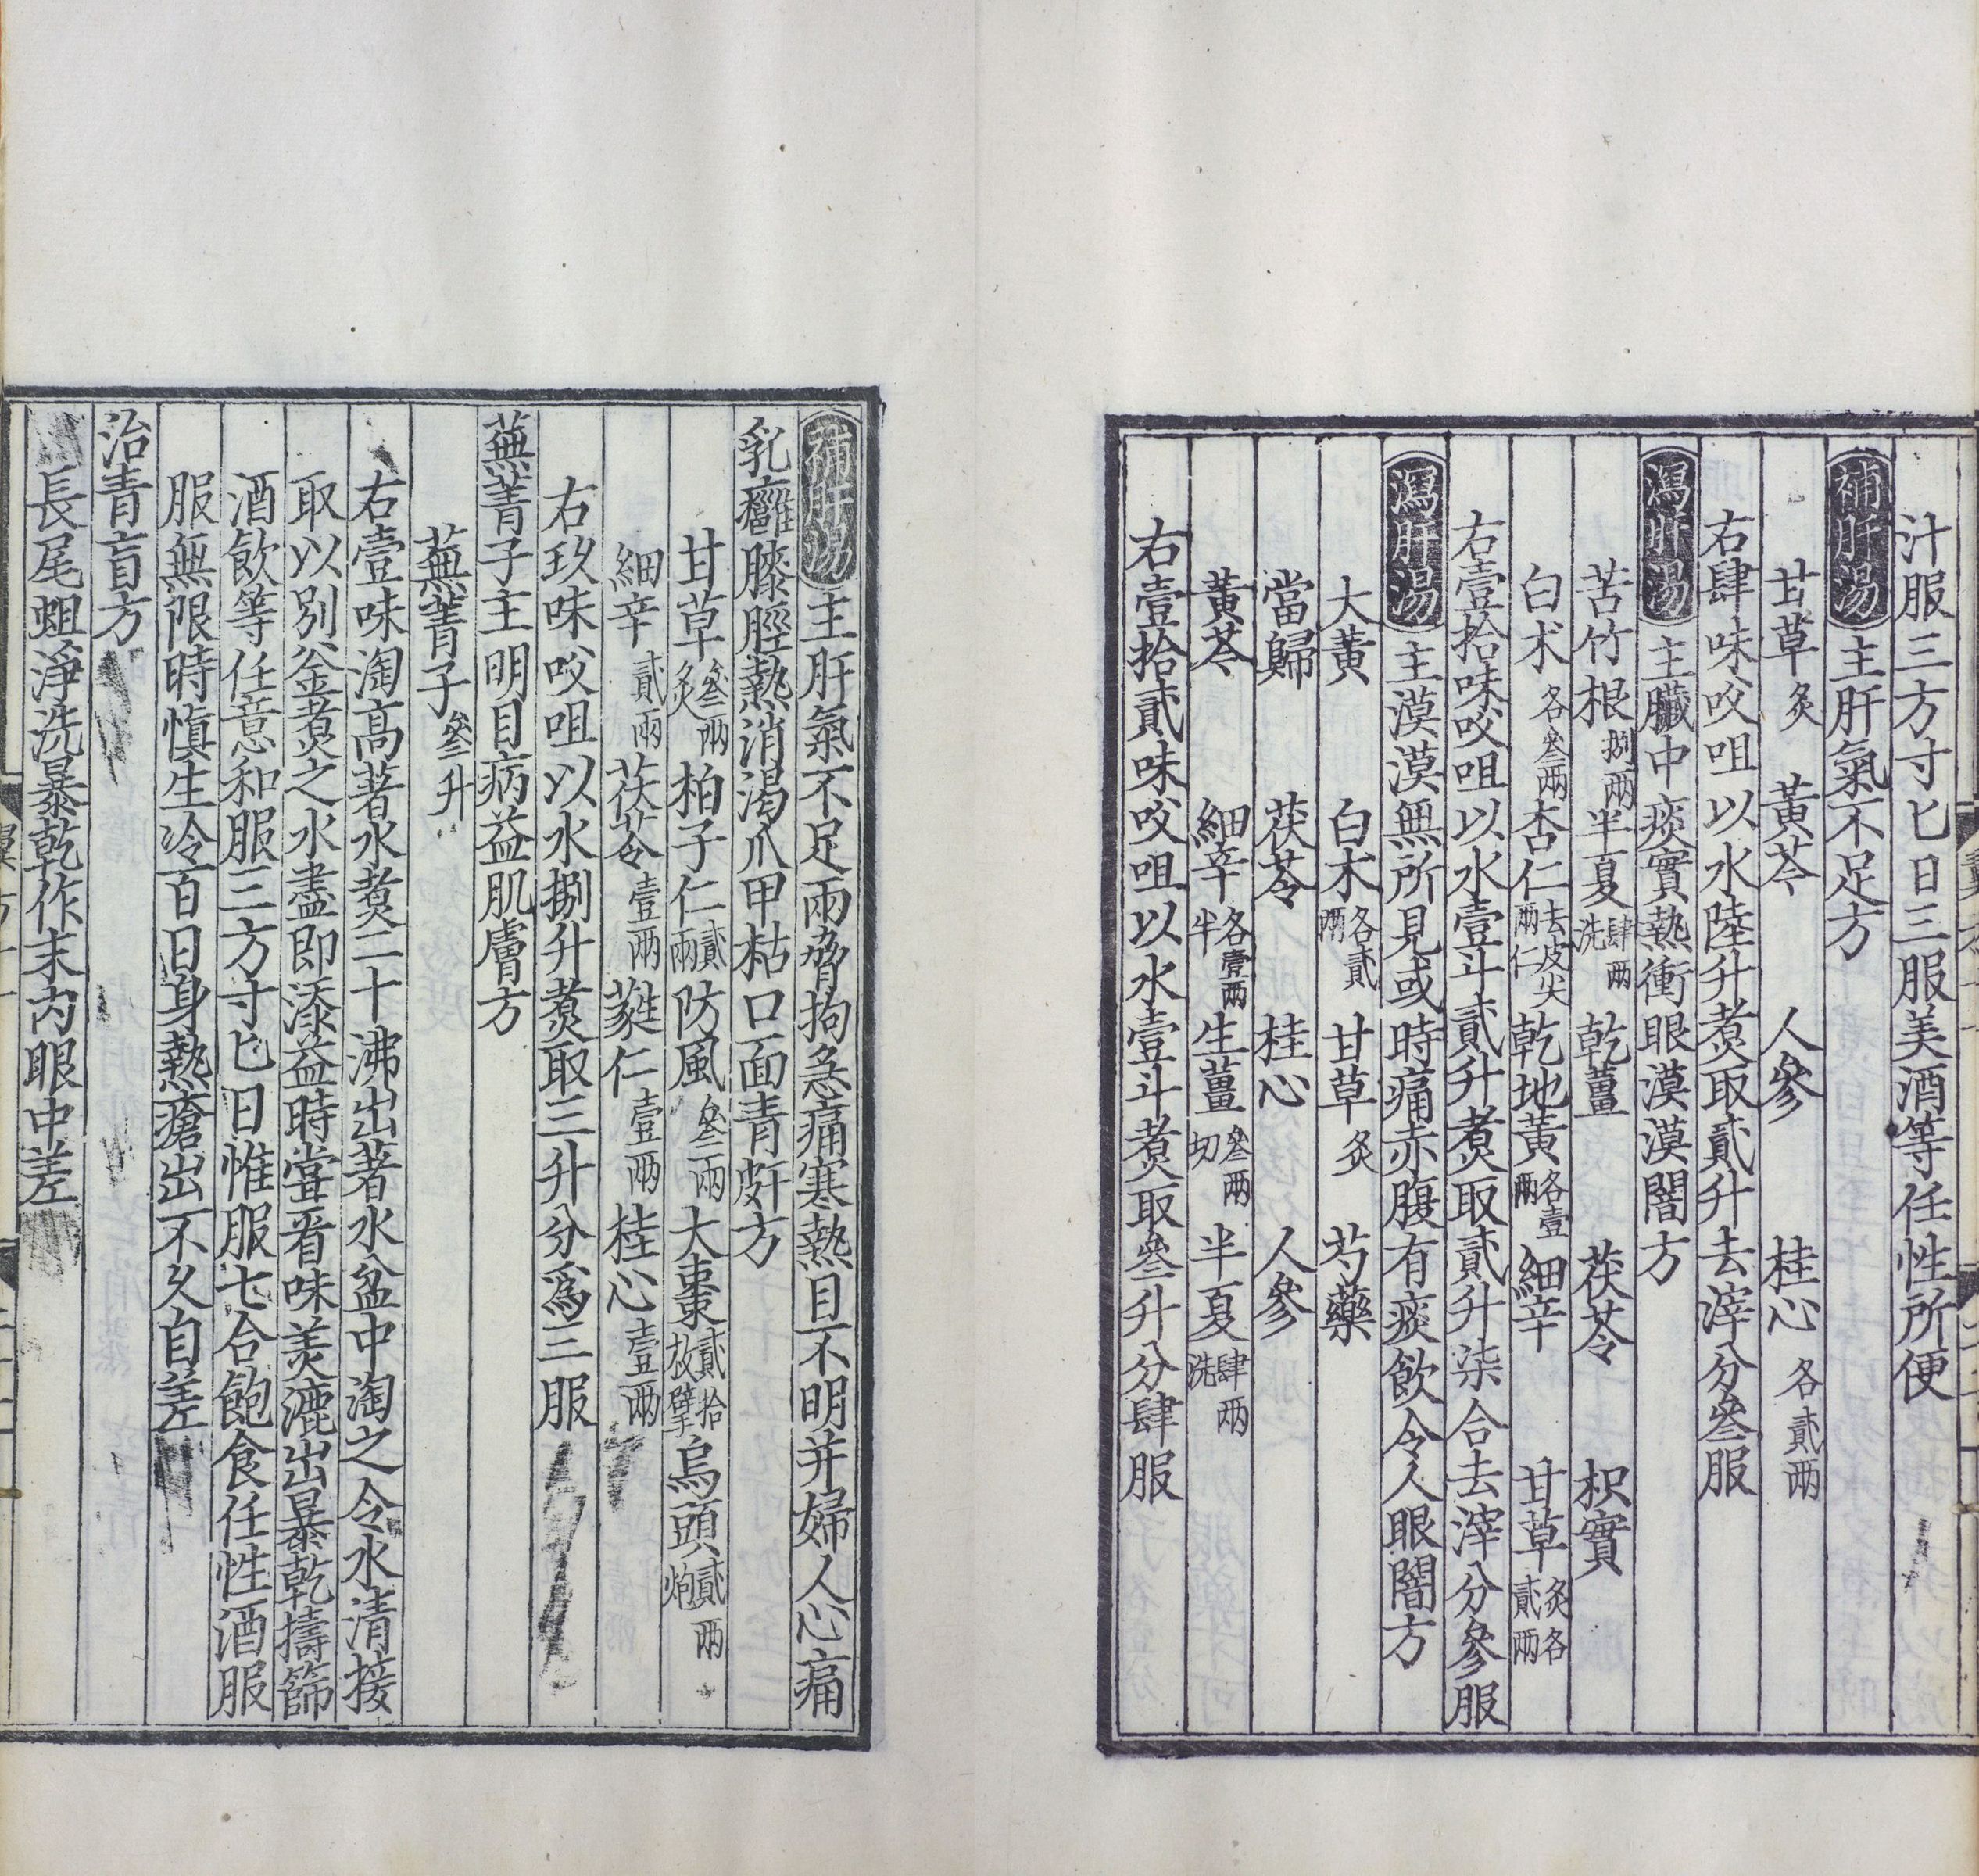 汁服三方寸匕日三服美酒等任性所便
補肝湯主肝氣不足方
甘草炙 黃芩 人參 桂心各貳兩
右肆味㕮咀以水陸升煑取貳升去滓分叄服
瀉肝湯主臟中痰實熱衝眼漠漠闇方
苦竹根捌兩半夏肆兩洗乾薑 茯苓 枳實
白朮各叄兩杏仁去皮尖兩仁乾地黃各壹兩細辛 甘草炙各貳兩
右壹拾味㕮咀以水壹斗貳升煑取貳升柒合去滓分參服
瀉肝湯主漠漠無所見或時痛赤腹有痰飲令人眼闇方
大黃 白朮各貳兩甘草炙 芍藥
當歸 茯苓 桂心 人參
黃芩 細辛各壹兩半生薑叄兩切半夏肆兩洗
右壹拾貳味㕮咀以水壹斗煑取叄升分肆服
補肝湯主肝氣不足兩脅拘急痛寒熱目不明并婦人心痛
乳癰膝脛熱消渴爪甲枯口面青皯方
甘草叄兩炙柏子仁貳兩防風叄兩大棗貳拾枚擘烏頭貳兩炮
細辛貳兩茯苓壹兩蕤仁壹兩桂心壹兩
右玖味㕮咀以水捌升煑取三升分爲三服
蕪菁子主明目病益肌膚方
蕪菁子叄升
右壹味淘高著水煑二十沸出著水盆中淘之令水清接
取以別釜煑之水盡即添益時嘗看味美漉出暴乾擣篩
酒飲等任意和服三方寸匕日惟服七合飽食任性酒服
服無限時慎生冷百日身熱瘡出不久自差
治青盲方
長尾蛆淨洗暴乾作末內眼中差